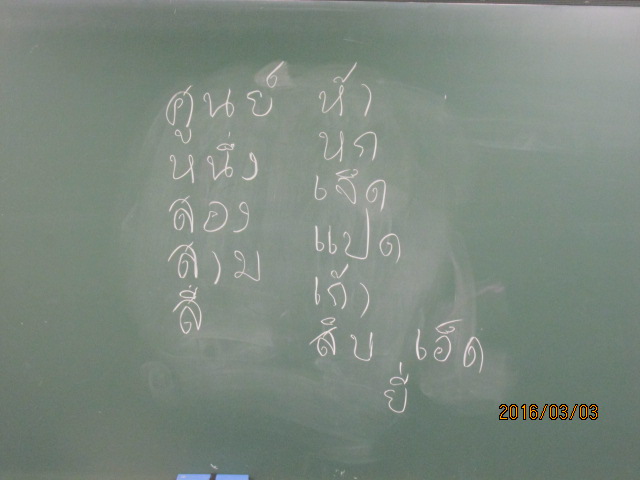 ศูนย์
หนึ่ง
สอง
สาม
สี่
ห้า
หก
เจ็ด
แปด
เก้า
สิบ เอ็ด
ยี่
2016/03/03